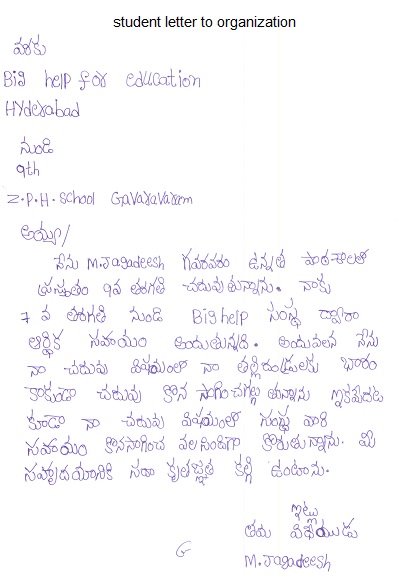 student letter to organization
వరకు
Big help for education
Hyderabad
నుండి
9th
Z.P.H.school Gavaravaram
అయ్యా/
నేను M.Jagadeesh గవరవరం ఉన్నత పాఠశాలలో
ప్రస్తుతం 9వ తరగతి చదువుతున్నాను. నాకు
7 వ తరగతి నుండి Bighelp సంస్థ ద్వారా
ఆర్థిక సహాయం అందుతున్నది. అందువలన నేను
నా చదువు విషయంలో నా తల్లిదండ్రులకు భారం
కాకుండా చదువు కొన సాగించగల్గు తున్నాను ఇకపైదట
కూడా నా చదువు విషయంలో సంస్థ వారి
సహాయం కొనసాగించ వలసిందిగా కోరుతున్నాను. మీ
సహృదయానికి సదా కృతజ్ఞత కల్గి ఉంటాను.
ఇట్లు
తమ విధేయుడు
M.Jagadeesh